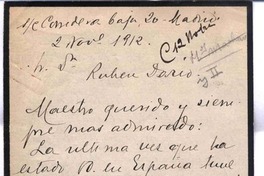 s/c Corredera baja 20 - Madrid
2 Novᵉ 1912.
C 12 Nobre
Sr Dn
Ruben Dario
II
Maestro querido y siem
pre mas admirado:
La ultima vez que ha
estado V. en España tuve